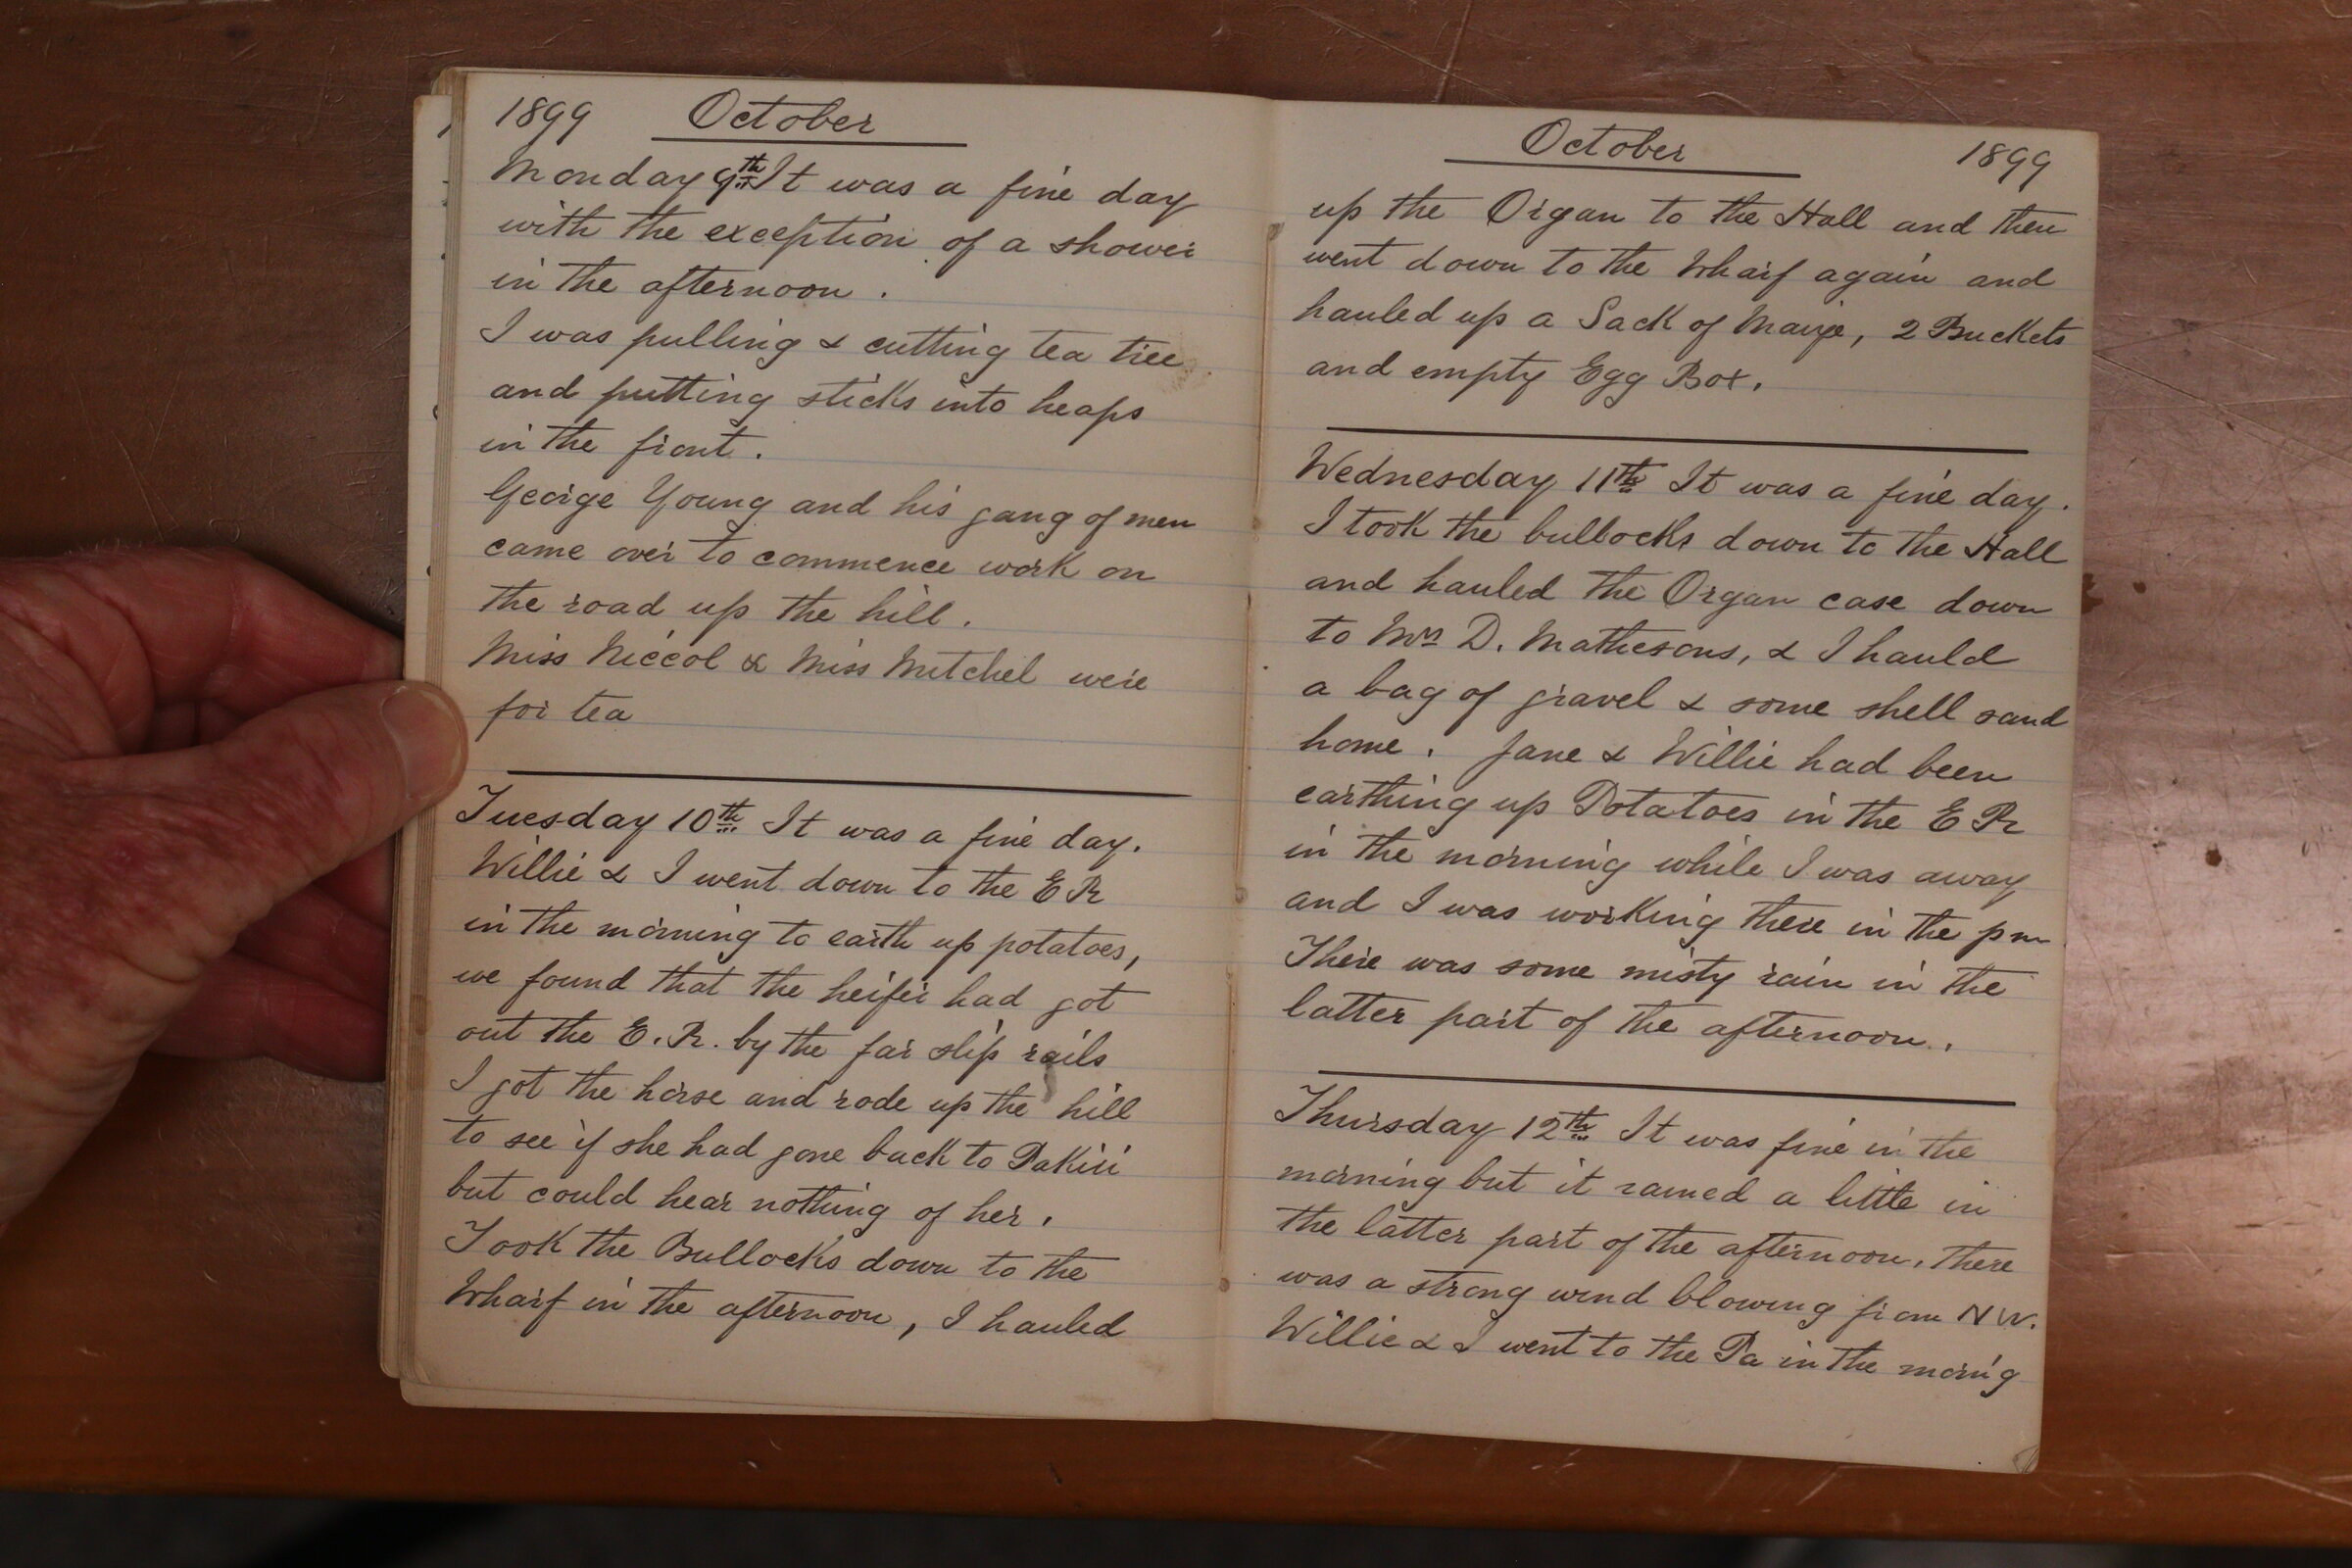 1899 October
Monday 9th It was a fine day
with the exception of a shower
in the afternoon.
I was pulling & cutting tea tree
and putting sticks into heaps
in the front.
George Young and his gang of men
came over to commence work on
the road up the hill.
Miss Niccol & Miss Mitchel were
for tea
Tuesday 10th It was a fine day.
Willie & I went down to the E R
in the morning to earth up potatoes,
we found that the heifer had got
out the E. R. by the far slip rails
I got the horse and rode up the hill
to see if she had gone back to Pakiri
but could hear nothing of her.
Took the Bullocks down to the
Wharf in the afternoon, I hauled
October 1899
up the Organ to the Hall and then
went down to the Wharf again and
hauled up a Sack of Maize, 2 Buckets
and empty Egg Box.
Wednesday 11th It was a fine day.
I took the bullocks down to the Hall
and hauled the Organ case down
to Mrs D. Mathesons, & I hauld
a bag of gravel & some shell sand
home. Jane & Willie had been
earthing up Potatoes in the E R
in the morning while I was away
and I was working there in the pm
There was some misty rain in the
latter part of the afternoon.
Thursday 12th It was fine in the
morning but it rained a little in
the latter part of the afternoon, there
was a strong wind blowing from N W.
Willie & I went to the Pa in the mornig